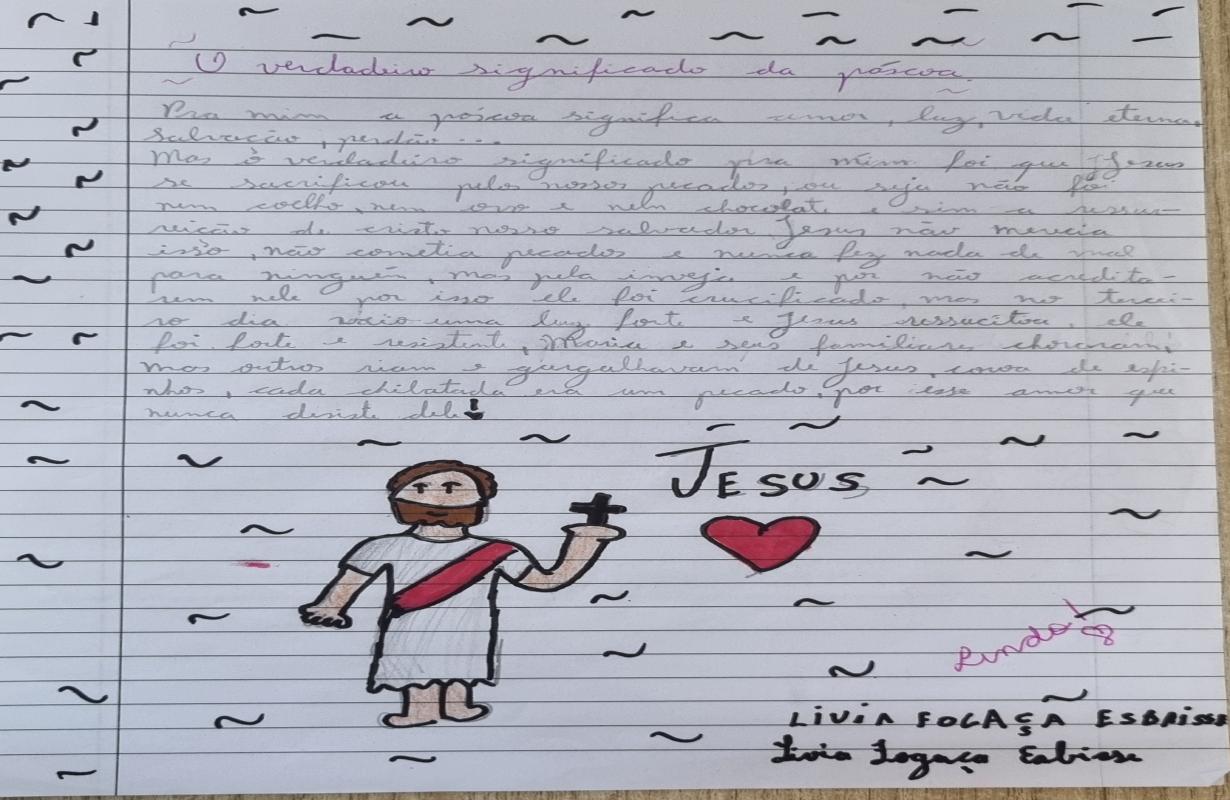 O verdadeiro significado da páscoa.
Pra mim a páscoa significa amor, luz, vida eterna,
salvação, perdão...
Mas o verdadeiro significado pra mim foi que Jesus
se sacrificou pelos nossos pecados, ou seja não foi
nem coelho, nem ovo e nem chocolate e sim a ressur-
reição de cristo nosso salvador. Jesus não merecia
isso, não cometia pecados e nunca fez nada de mal
para ninguém, mas pela inveja e por não acredita-
rem nele por isso ele foi crucificado, mas no tercei-
ro dia uma luz forte e Jesus ressucitou, ele
foi forte e resistente, Maria e seus familiares choraram,
mas outros riam e gargalhavam de Jesus, coroa de espi-
nhos, cada chibatada era um pecado, por esse amor que
nunca desiste dele
JESUS
Lindo!
LIVIA FOGAÇA
Livia Fogaça